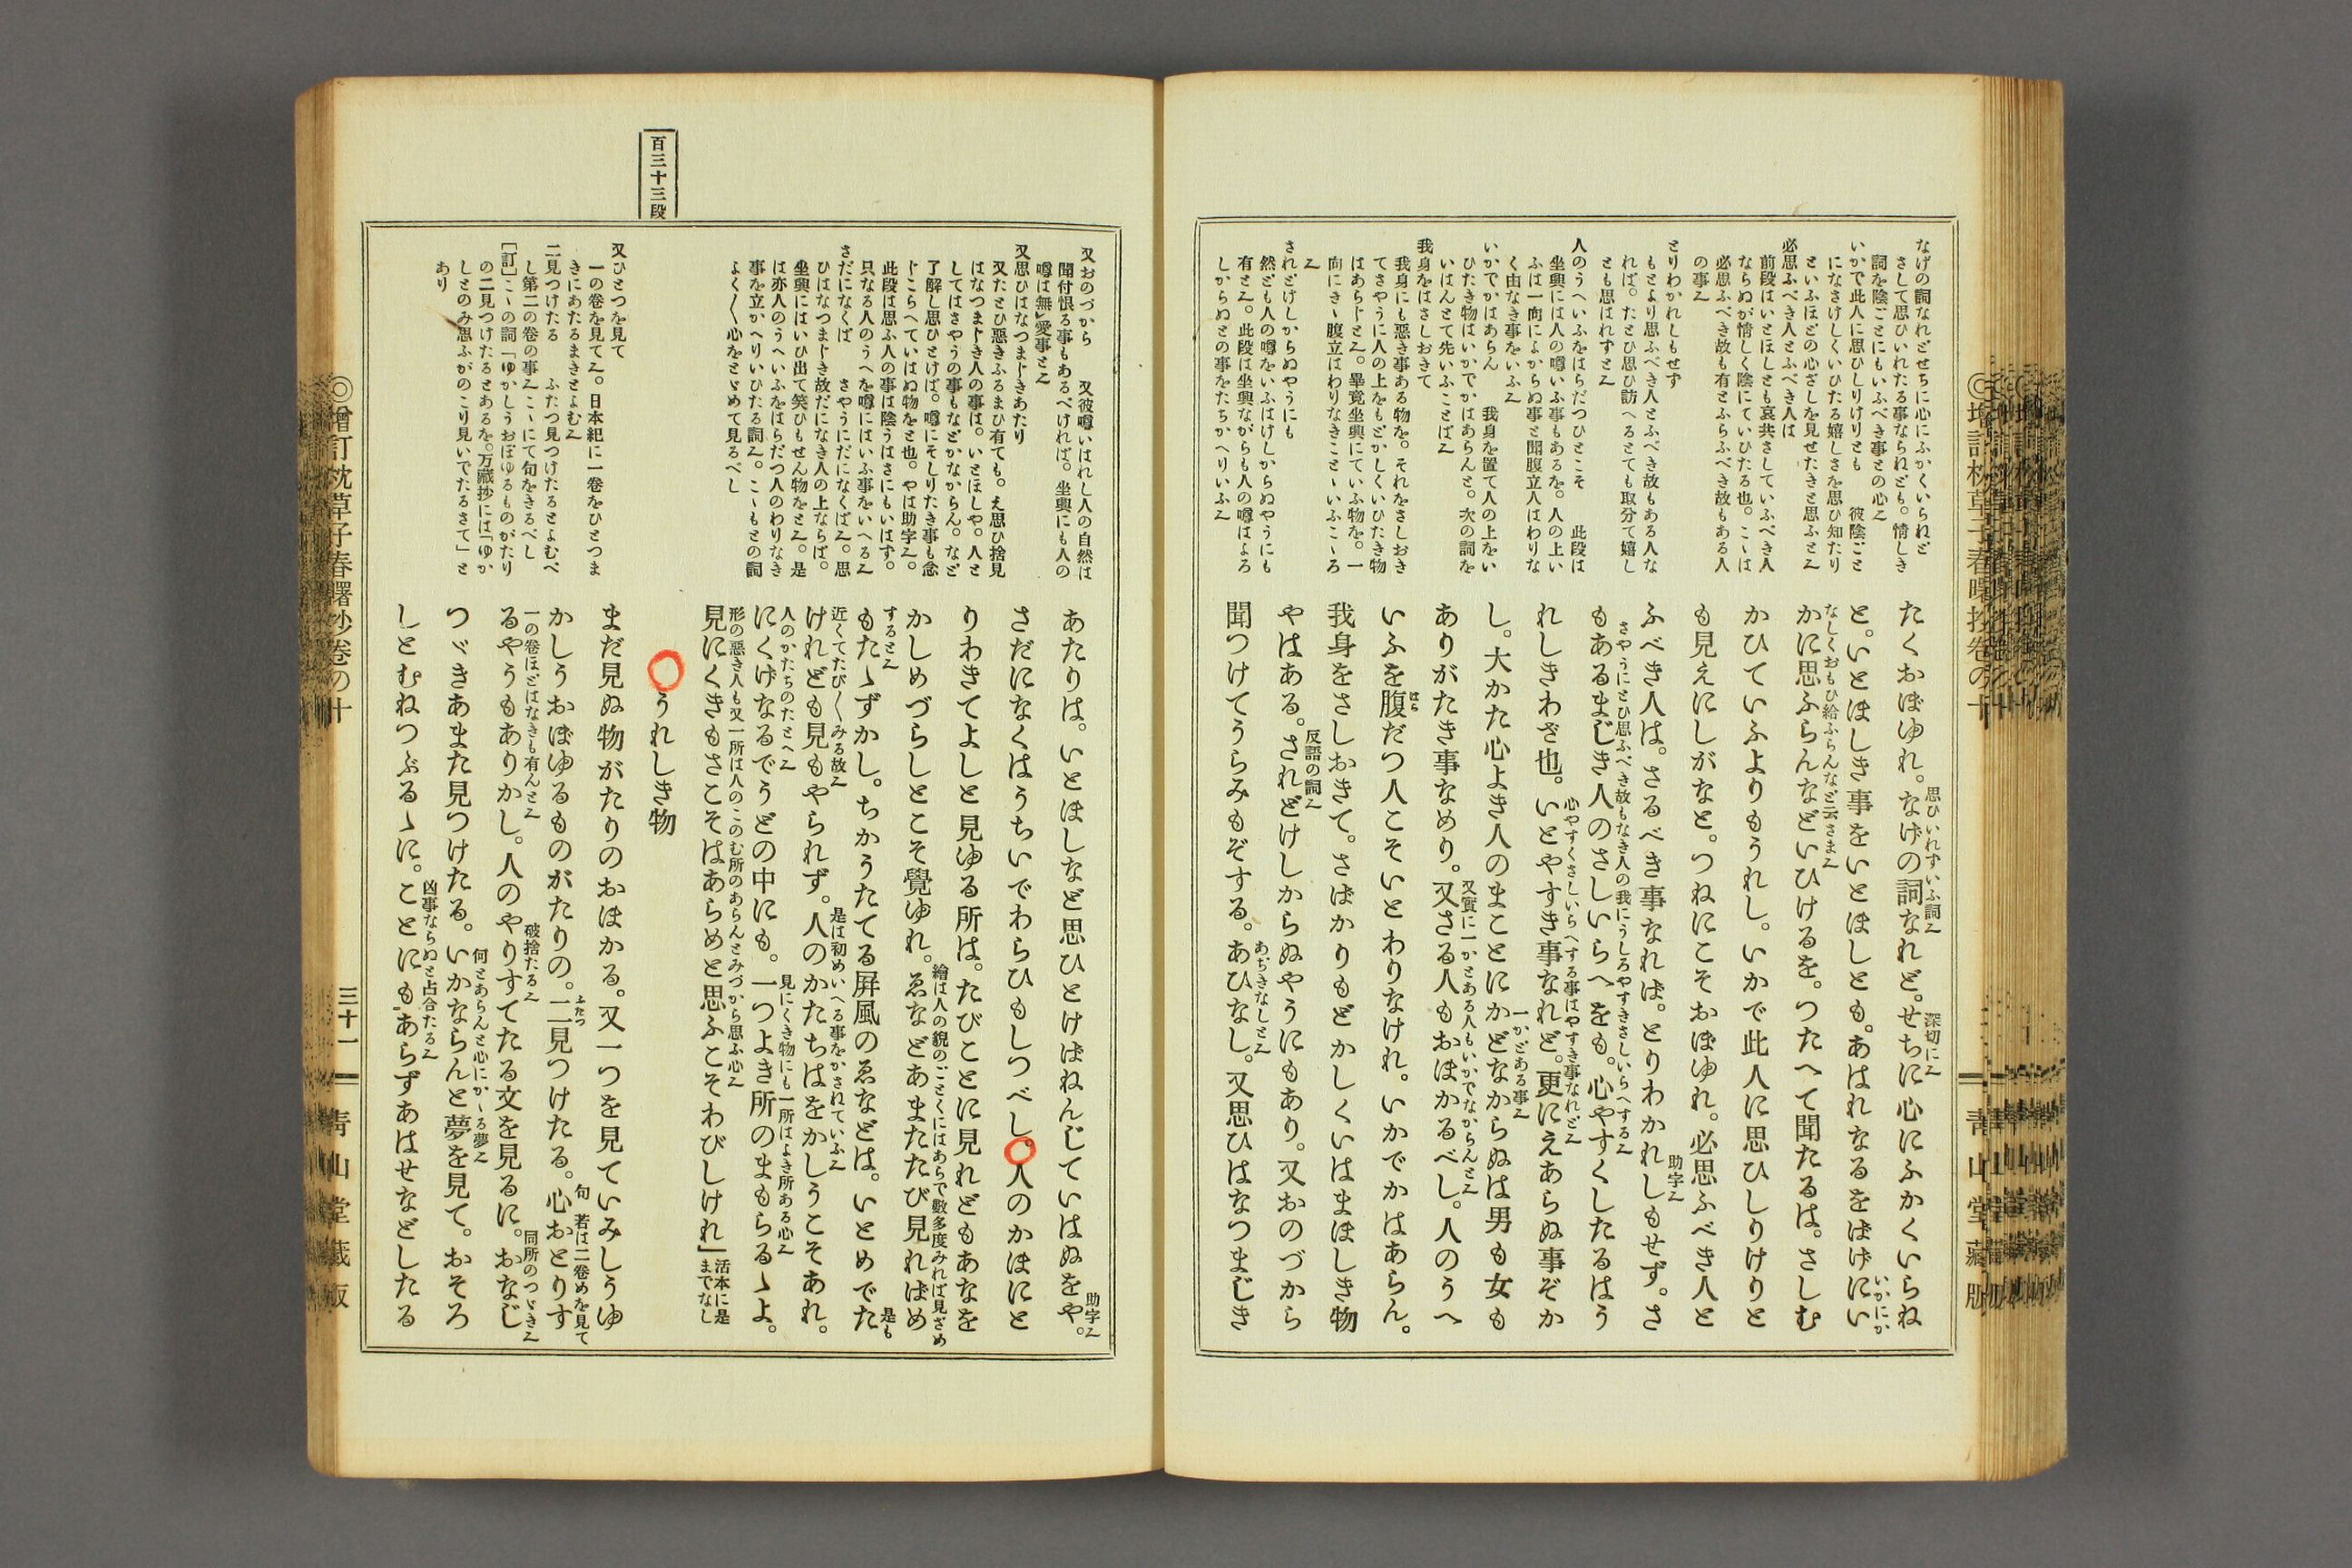 なげの詞なれどせちに心にふかくいられど
さして思ひいれたる事ならねども。情しき
詞を陰ごとにもいふべき事との心𛀁
いかで此人に思ひしりけりとも　彼陰ごと
になさけしくいひたる嬉しさを思ひ知たり
といふほどの心ざしを見せたきと思ふと𛀁
必思ふべき人とふべき人は
前段はいとほしとも哀共さしていふべき人
ならぬが情しく陰にていひたる也。こゝは
必思ふべき故も有とふらふべき故もある人
の事𛀁
とりわかれしもせず
もとより思ふべき人とふべき故もある人な
れば。たとひ思ひ訪へるとても取分て嬉し
とも思はれずと𛀁
人のうへいふをはらだつひとこそ　此段は
坐興には人の噂いふ事もあるを。人の上い
ふは一向によからぬ事と聞腹立人はわりな
く由なき事をいふ𛀁
いかでかはあらん　我身を置て人の上をい
ひたき物はいかでかはあらんと。次の詞を
いはんとて先いふことば𛀁
我身をはさしおきて
我身にも悪き事ある物を。それをさしおき
てさやうに人の上をもどかしくいひたき物
はあらじと𛀁。畢竟坐興にていふ物を。一
向にきゝ腹立はわりなきことゝいふこゝろ
𛀁
されどけしからぬやうにも
然ども人の噂をいふはけしからぬやうにも
有と𛀁。此段は坐興ながらも人の噂はよろ
しからぬとの事をたちかへりいふ𛀁
たくおぼゆれ。なげの詞なれど。せちに心にふかくいらね
思ひいれずいふ詞𛀁
深切に𛀁
と。いとほしき事をいとほしとも。あはれなるをばげにい
いかにか
なしくおもひ給ふらんなど云さま𛀁
かに思ふらんなどいひけるを。つたへて聞たるは。さしむ
かひていふよりもうれし。いかで此人に思ひしりけりと
も見えにしがなと。つねにこそおぼゆれ。必思ふべき人と
ふべき人は。さるべき事なれば。とりわかれしもせず。さ
助字𛀁
さやうにとひ思ふべき故もなき人の我にうしろやすきさしいらへする𛀁
もあるまじき人のさしいらへをも。心やすくしたるはう
心やすくさしいらへする事はやすき事なれど𛀁
れしきわざ也。いとやすき事なれど。更にえあらぬ事ぞか
一かどある事𛀁
し。大かた心よき人のまことにかどなからぬは男も女も
又實に一かとある人もいかでなからんと𛀁
ありがたき事なめり。又さる人もおほかるべし。人のうへ
いふを腹だつ人こそいとわりなけれ。いかでかはあらん。
はら
我身をさしおきて。さばかりもどかしくいはまほしき物
反語の詞𛀁
やはある。されどけしからぬやうにもあり。又おのづから
あぢきなしと𛀁
聞つけてうらみもぞする。あひなし。又思ひはなつまじき
◎増訂枕草子春曙抄卷の十
靑山堂藏版
又おのづから　又彼噂いはれし人の自然は
聞付恨る事もあるべければ。坐興にも人の
噂は無愛事と𛀁
又思ひはなつまじきあたり
又たとひ悪きふるまひ有ても。え思ひ捨見
はなつまじき人の事は。いとほしや。人と
してはさやうの事もなどかなからん。など
了解し思ひとけば。噂にそしりたき事も念
じこらへていはぬ物をと也。やは助字𛀁。
此段は思ふ人の事は陰うはさにもいはず。
只なる人のうへを噂にはいふ事をいへる𛀁
さだになくば　さやうにだになくば𛀁。思
ひはなつまじき故だになき人の上ならば。
坐興にはいひ出て笑ひもせん物をと𛀁。是
は亦人のうへいふをはらだつ人のわりなき
事を立かへりいひたる詞𛀁。こゝもとの詞
よく〳〵心をとゞめて見るべし
百三十三段
又ひとつを見て
一の卷を見て𛀁。日本紀に一卷をひとつま
きにあたるまきとよむ𛀁
二見つけたる　ふたつ見つけたるとよむべ
し第二の卷の事𛀁こゝにて句をきるべし
［訂］こゝの詞「ゆかしうおぼゆるものがたり
の二見つけたるとあるを。万歳抄には「ゆか
しとのみ思ふがのこり見いでたるさて」と
あり
あたりは。いとほしなど思ひとけばねんじていはぬをや。
助字𛀁
さだになくはうちいでわらひもしつべし。〇人のかほにと
りわきてよしと見ゆる所は。たびことに見れどもあなを
繪は人の貌のごとくにはあらで數多度みれば見ざめ
かしめづらしとこそ覺ゆれ。ゑなどあまたたび見ればめ
すると𛀁
是も
もたゝずかし。ちかうたてる屏風のゑなどは。いとめでた
近くてたび〳〵みる故𛀁
是は初めいへる事をかさねていふ𛀁
けれども見もやられず。人のかたちはをかしうこそあれ。
人のかたちのたとへ𛀁
見にくき物にも一所はよき所ある心𛀁
にくげなるでうどの中にも。一つよき所のまもらるゝよ。
形の悪き人も又一所は人のこのむ所のあらんとみづから思ふ心𛀁
見にくきもさこそはあらめと思ふこそわびしけれ」
活本に是
までなし
〇うれしき物
まだ見ぬ物がたりのおほかる。又一つを見ていみしうゆ
句　若は二卷めを見て
かしうおぼゆるものがたりの。二見つけたる。心おとりす
ふたつ
一の卷ほどはなきも有んと𛀁
破捨たる𛀁
同所のつゞき𛀁
るやうもありかし。人のやりすてたる文を見るに。おなじ
何とあらんと心にかゝる夢𛀁
つゞきあまた見つけたる。いかならんと夢を見て。おそろ
凶事ならぬと占合たる𛀁
しとむねつぶるゝに。ことにもあらずあはせなどしたる
◎增訂枕草子春曙抄卷の十
三十一
靑山堂藏版